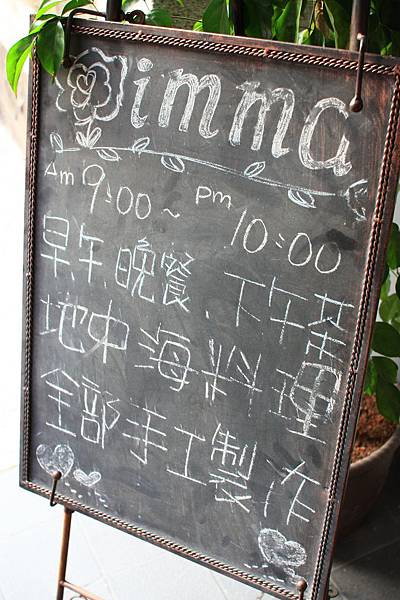 imma
Am 9:00 ~ pm 10:00
早.午.晚餐.下午茶
地中海料理
全部手工製作